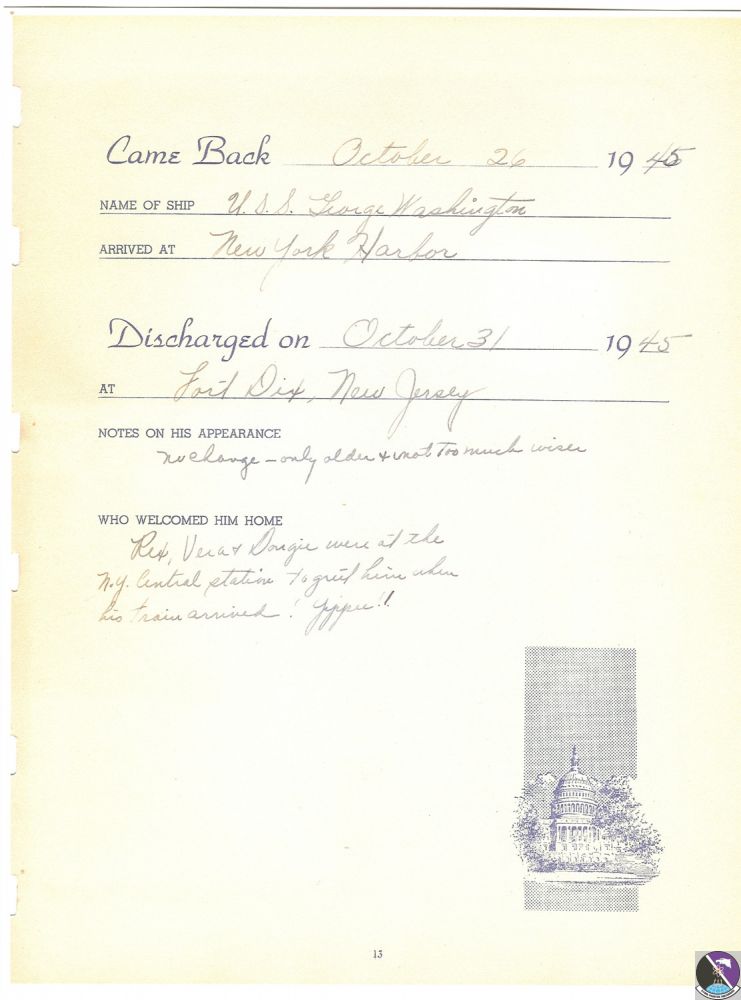 Came Back October 26 1945
NAME OF SHIP U.S.S. George Washington
ARRIVED AT New York Harbor
Discharged on October 31 1945
AT Fort Dix, New Jersey
NOTES ON HIS APPEARANCE
no change – only older & not too much wiser
WHO WELCOMED HIM HOME
Rex, Vera & Dougie were at the
N.Y. Central station to greet him when
his train arrived! Yippee!!
13